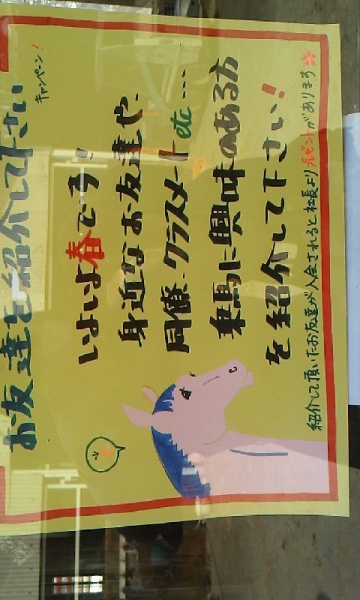 お友達を紹介して下さい
キャンペーン!
いよいよ春です!
身近なお友達や、
同僚、クラスメートetc…
乗馬に興味のある方
を紹介して下さい!
紹介して頂いたお友達が入会されると社長よりプレゼントがあります